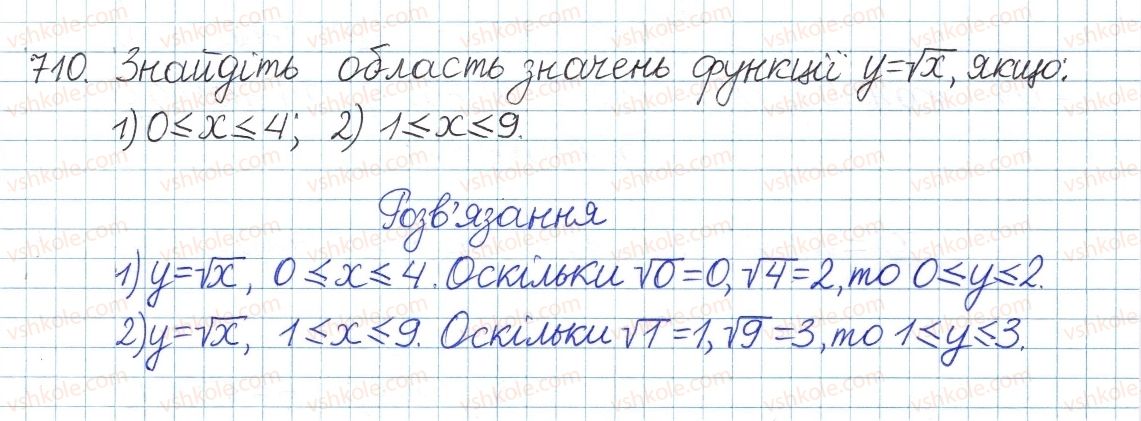 710. Знайдіть область значень функції y=√x, якщо:
1) 0≤x≤4; 2) 1≤x≤9.
Розв'язання
1) y=√x, 0≤x≤4. Оскільки √0=0, √4=2, то 0≤y≤2.
2) y=√x, 1≤x≤9. Оскільки √1=1, √9=3, то 1≤y≤3.